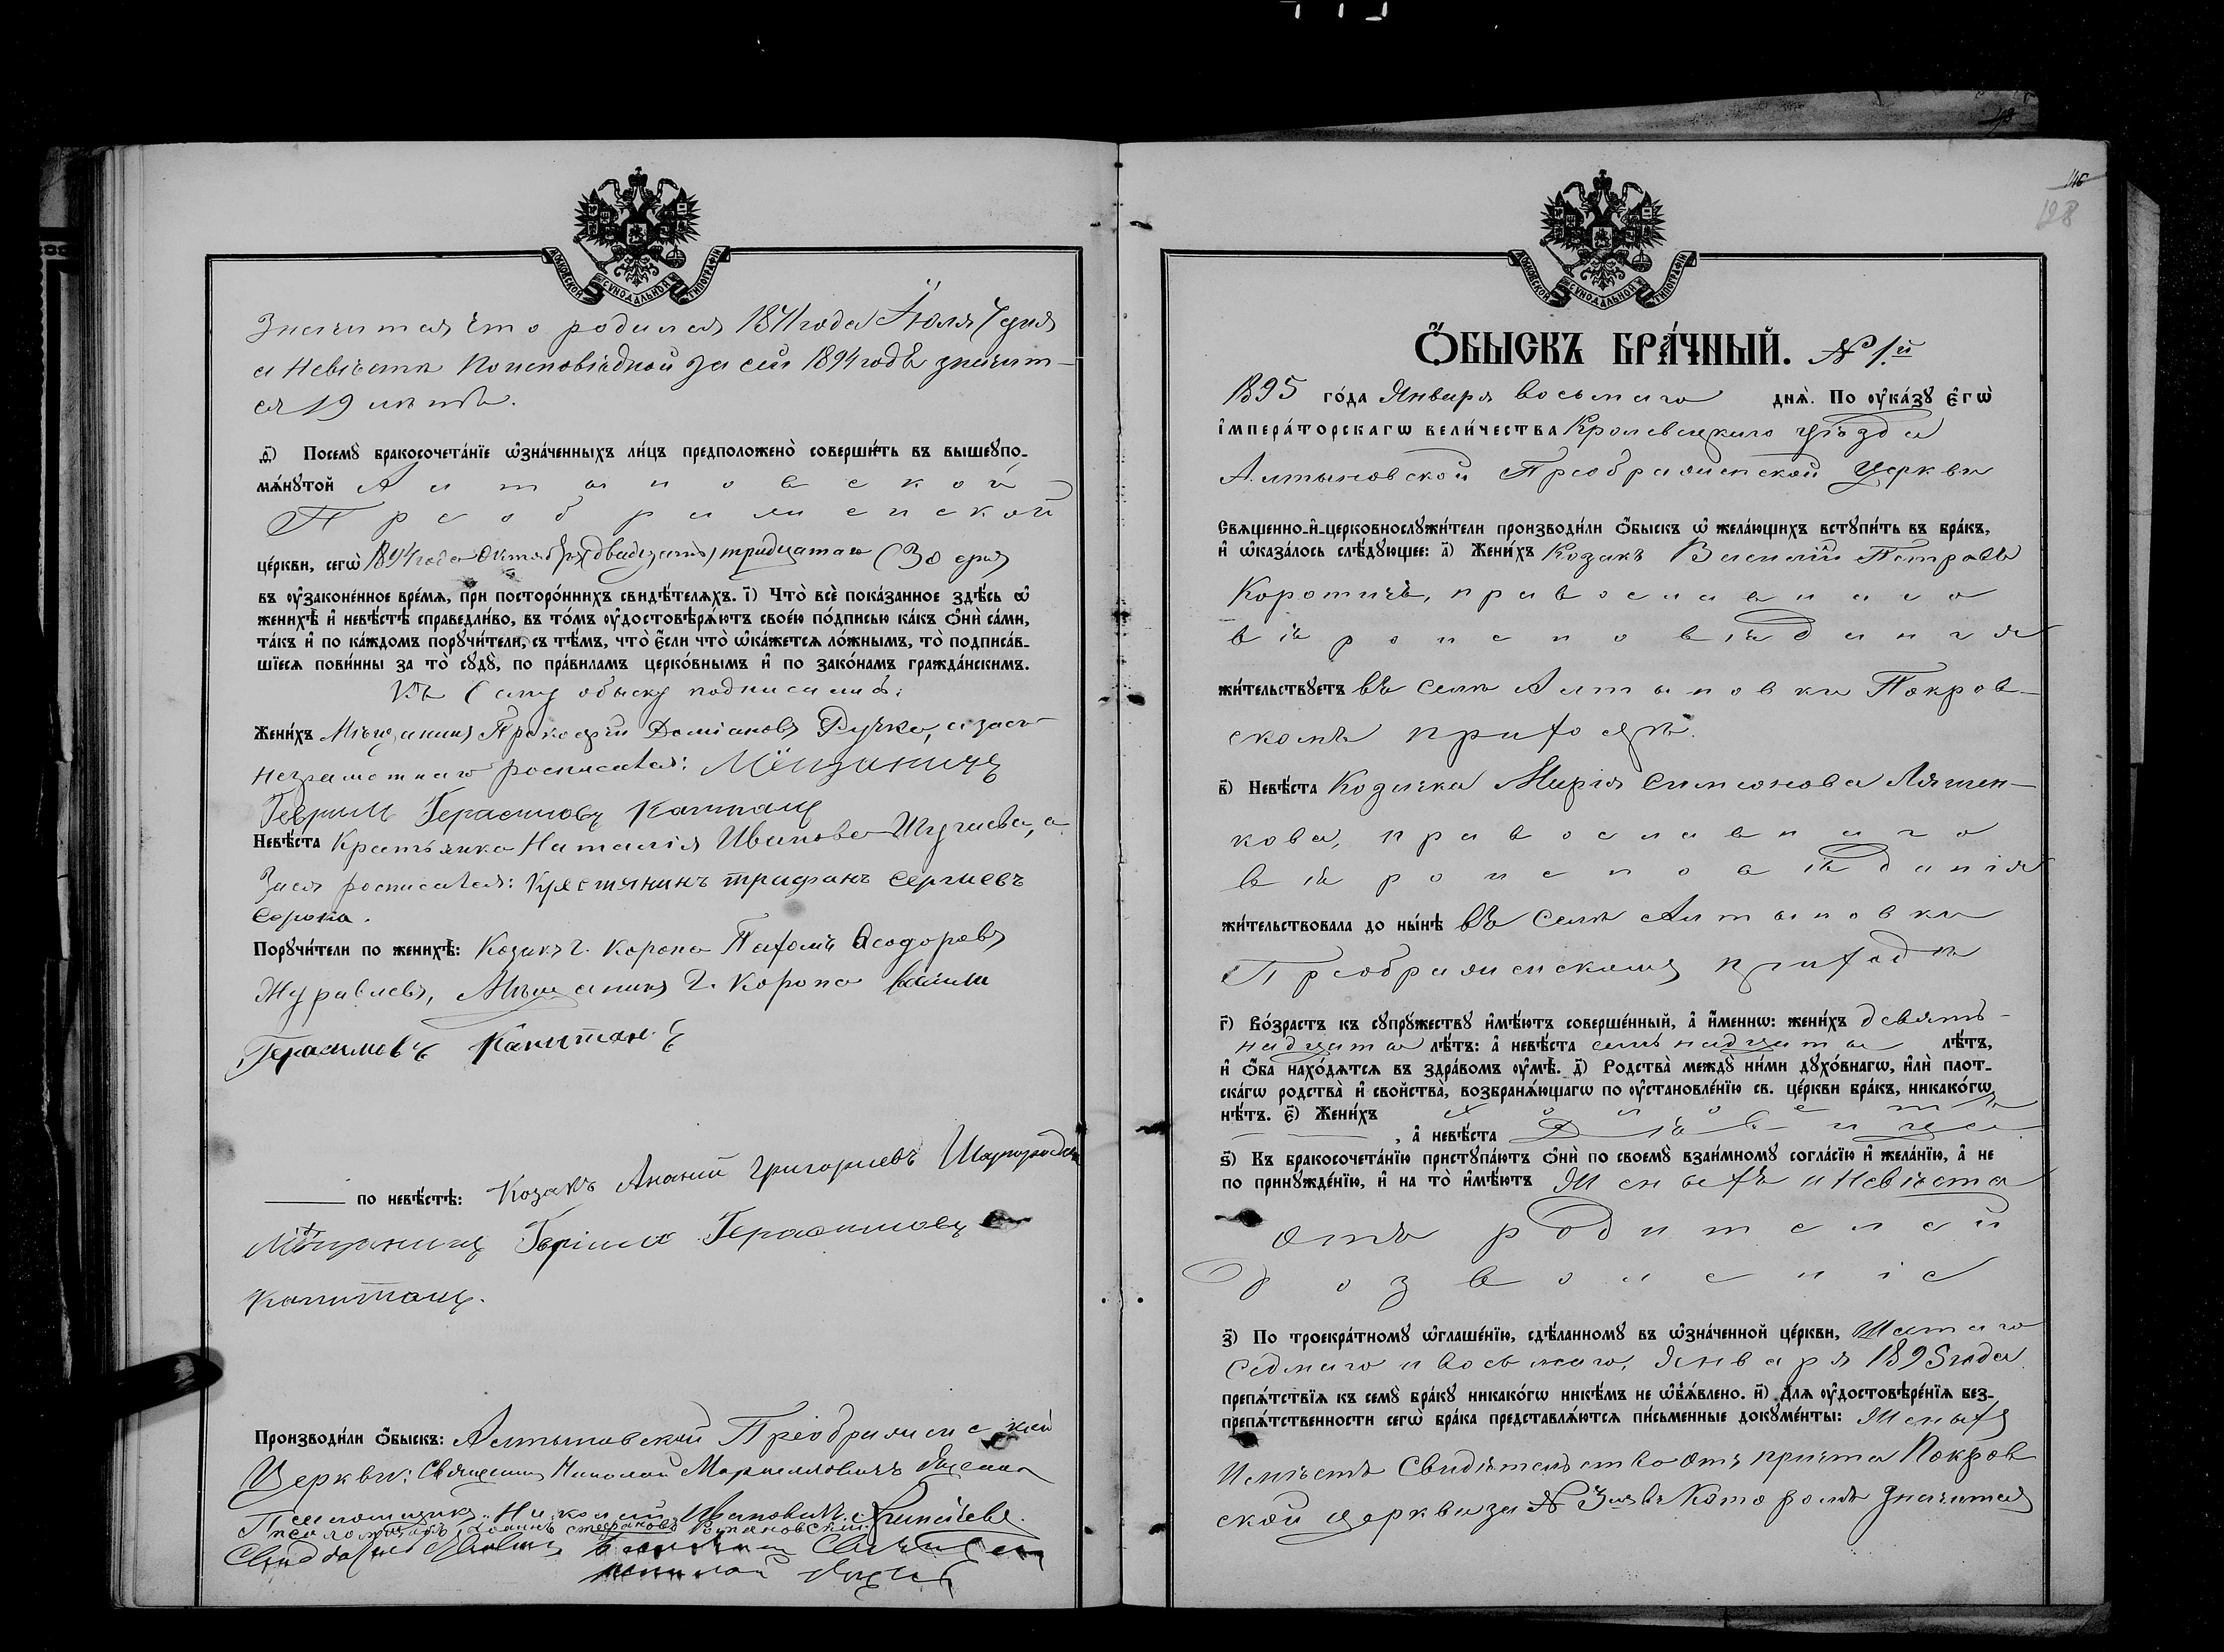 МОСКОВСКОЙ СУНОДАЛЬНОЙ ТИПОГРАФІИ
Значится что родился 1871 года Іюля 7 дня
а Невѣста по исповѣдной за сей 1894 годъ значит-
ся 19 лѣтъ.
д҃) Посемꙋ̀ бракосочета́нїе ѡ҆зна́ченныхъ ли́цъ предположено̀ соверши́ть въ вышеꙋпо-
мѧ́нꙋтой Алтыновской
Преображенской
це́ркви, сегѡ̀ 1894 года Октября (двадцать) тридцатаго (30 дня
въ ᲂу҆законе́нное вре́мѧ, при посторо́ннихъ свидѣ́телѧхъ. і҃) Что̀ всѐ пока́занное здѣ́сь ѡ҆
женихѣ̀ и҆ невѣ́стѣ справедли́во, въ то́мъ ᲂу҆достовѣрѧ́ютъ свое́ю по́дписью ка́къ ѻ҆нѝ са́ми,
та́къ и҆ по ка́ждомъ порꙋчи́тели, съ тѣ́мъ, что̀ є҆́сли что̀ ѡ҆ка́жетсѧ ло́жнымъ, то̀ подписа́в-
шїесѧ пови́нны за то̀ сꙋдꙋ̀, по пра́виламъ церко́внымъ и҆ по зако́намъ гражда́нскимъ.
Къ Сему обыску подписались:
Жени́хъ Мѣщанинъ Прокофій Доміановъ Ручко, а за его
неграмотнаго росписался: Мѣщанинъ
Гаврилъ Герасимовъ Капитанъ
Невѣ́ста Наталія Иванова а
За ея росписался: Крестянинъ трифанъ Сергиевъ
Сорока.
Порꙋчи́тели по женихѣ̀: Козакъ г. Коропа Пахомъ Ѳеодоровъ
Журавлевъ, Мѣщанинъ г. Коропа
Герасимовъ Капитанъ
по невѣ́стѣ: Козакъ Ананий Григориевъ
Мѣщанинъ Гаврило Герасимовъ
Капитанъ.
Производи́ли ѻ҆́быскъ: Алтыновской Преображенской
Церкви: Священникъ Николай
Псаломщикъ Николай Ивановичъ
псаломщикъ
МОСКОВСКОЙ СУНОДАЛЬНОЙ ТИПОГРАФІИ
146
128
Ѻ҆БЫСКЪ БРА́ЧНЫЙ. № 1.й
1895 го́да Января восьмаго днѧ̀. По ᲂу҆ка́зꙋ є҆гѡ̀
і҆мпера́торскагѡ вели́чества Кролевецкаго уѣзда
Алтыновской Преображенской Церкви
Свѧщенно-и҆-церковнослꙋжи́тели производи́ли ѻ҆́быскъ ѡ҆ жела́ющихъ встꙋпи́ть въ бра́къ,
и҆ ѡ҆каза́лось слѣ́дꙋющее: а҃) Жени́хъ Козакъ Василій Петровъ
Коротичъ, православнаго
вѣроисповѣданія
жи́тельствꙋетъ въ селѣ Алтыновки Покров-
скомъ приходѣ.
в҃) Невѣ́ста Козачка Марія Симеонова Ляшен-
кова, православнаго
вѣроисповѣданія
жи́тельствовала до ны́нѣ въ Селѣ Алтыновки
Преображенскомъ приходѣ
г҃) Во́зрастъ къ сꙋпрꙋ́жествꙋ и҆мѣ́ютъ соверше́нный, а҆ и҆́меннѡ: жени́хъ девять-
надцать лѣ́тъ: а҆ невѣ́ста семьнадцать лѣ́тъ,
и҆ ѻ҆́ба нахо́дѧтсѧ въ здра́вомъ ᲂу҆мѣ̀. д҃) Родства̀ междꙋ̀ ни́ми дꙋхо́внагѡ, и҆лѝ плот-
ска́гѡ родства̀ и҆ свойства̀, возбранѧ́ющагѡ по ᲂу҆становле́нїю св. це́ркви бра́къ, никако́гѡ
нѣ́тъ. є҃) Жени́хъ холостъ
, а҆ невѣ́ста Дѣвица
ѕ҃) Къ бракосочета́нїю пристꙋпа́ютъ ѻ҆нѝ по своемꙋ̀ взаи́мномꙋ согла́сїю и҆ жела́нїю, а҆ не
по принꙋжде́нїю, и҆ на то̀ и҆мѣ́ютъ Женихъ и Невѣста
отъ родителей
дозволеніе
з҃) По троекра́тномꙋ ѡ҆глаше́нїю, сдѣ́ланномꙋ въ ѡ҆зна́ченной це́ркви, Шестаго
Седмаго и восьмаго, Января 1895 года
препѧ́тствїѧ къ семꙋ̀ бра́кꙋ никако́гѡ никѣ́мъ не ѡ҆б̾ѧ́влено. и҃) Длѧ ᲂу҆достовѣре́нїѧ без-
препѧ́тственности сегѡ̀ бра́ка представлѧ́ютсѧ пи́сьменные докꙋме́нты: Женихъ
Имѣетъ Свидѣтельство отъ причта Покров
ской церкви за № 3мъ въ Которомъ значится